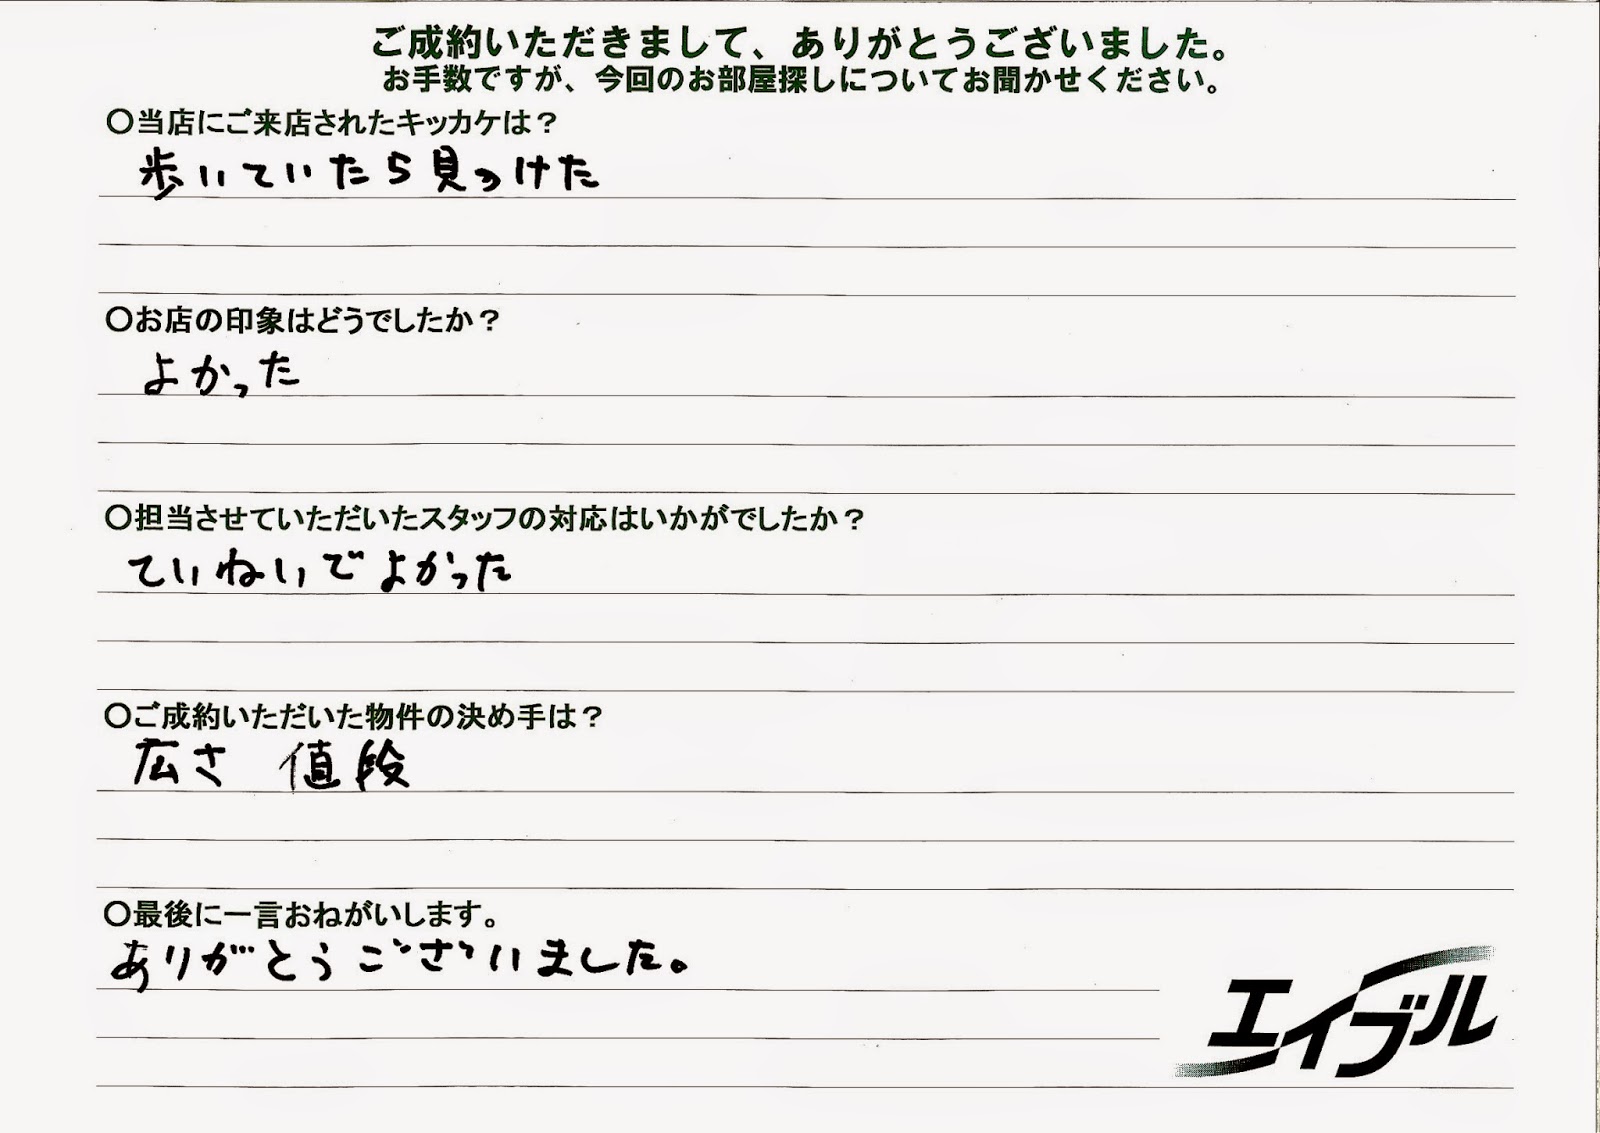 ご成約いただきまして、ありがとうございました。
お手数ですが、今回のお部屋探しについてお聞かせください。
〇当店にご来店されたキッカケは？
歩いていたら見つけた
〇お店の印象はどうでしたか？
よかった
〇担当させていただいたスタッフの対応はいかがでしたか？
ていねいでよかった
〇ご成約いただいた物件の決め手は？
広さ 値段
〇最後に一言おねがいします。
ありがとうございました。
エイブル